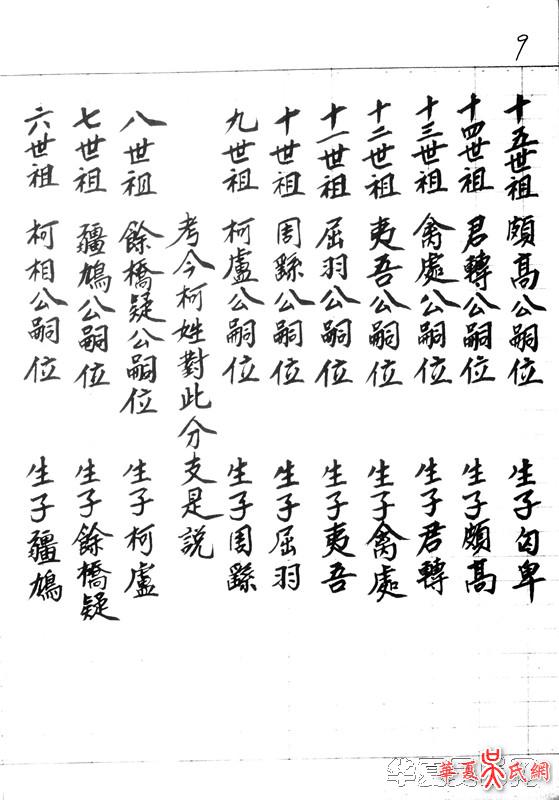 9
六世祖 柯相公嗣位 生子疆鳩
七世祖 疆鳩公嗣位 生子餘橋疑
八世祖 餘橋疑公嗣位 生子柯盧
考今柯姓對此分支是説
九世祖 柯盧公嗣位 生子周繇
十世祖 周繇公嗣位 生子屈羽
十一世祖 屈羽公嗣位 生子夷吾
十二世祖 夷吾公嗣位 生子禽處
十三世祖 禽處公嗣位 生子君轉
十四世祖 君轉公嗣位 生子頗高
十五世祖 頗高公嗣位 生子句卑
華夏吳氏網